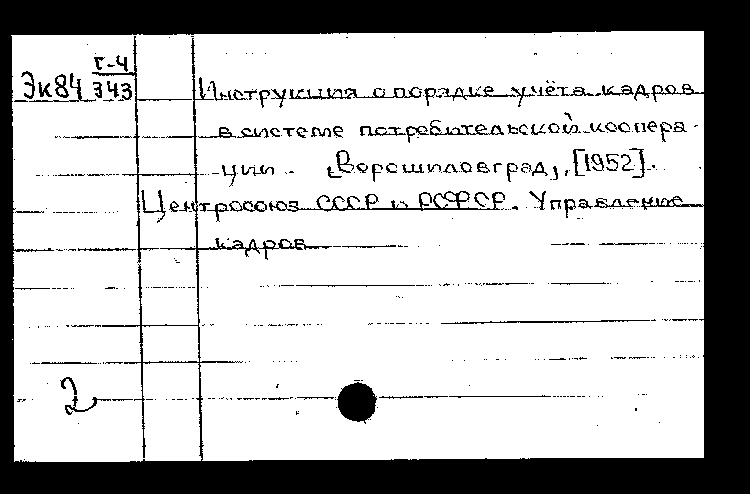 Г-4
Эк84 343 Инструкция о порядке учёта кадров
в системе потребительской коопера-
ции. [Ворошиловград], [1952].
Центросоюз СССР и РСФСР. Управление
кадров
2